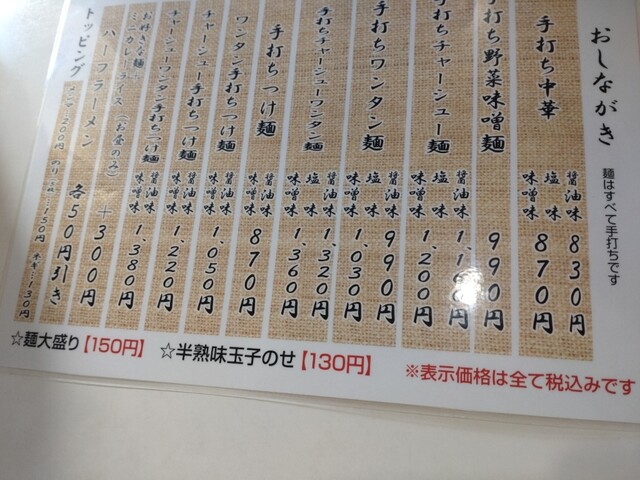 おしながき
麺はすべて手打ちです
手打ち中華
醤油味 830円
塩味
味噌味 870円
手打ち野菜味噌麺 990円
手打ちチャーシュー麺
醤油味
塩味 1,160円
味噌味 1,200円
手打ちワンタン麺
醤油味
塩味 990円
味噌味 1,030円
手打ちチャーシューワンタン麺
醤油味
塩味 1,320円
味噌味 1,360円
手打ちつけ麺
醤油味
味噌味 870円
ワンタン手打ちつけ麺
醤油味
味噌味 1,050円
チャーシュー手打ちつけ麺
醤油味
味噌味 1,220円
チャーシューワンタン手打ちつけ麺
醤油味
味噌味 1,380円
お好きな麺+
ミニカレーライス(お昼のみ) +300円
ハーフラーメン 各50円引き
トッピング
メンマ…200円 のり…150円 ネギ…130円
☆麺大盛り【150円】
☆半熟味玉子のせ【130円】
※表示価格は全て税込みです